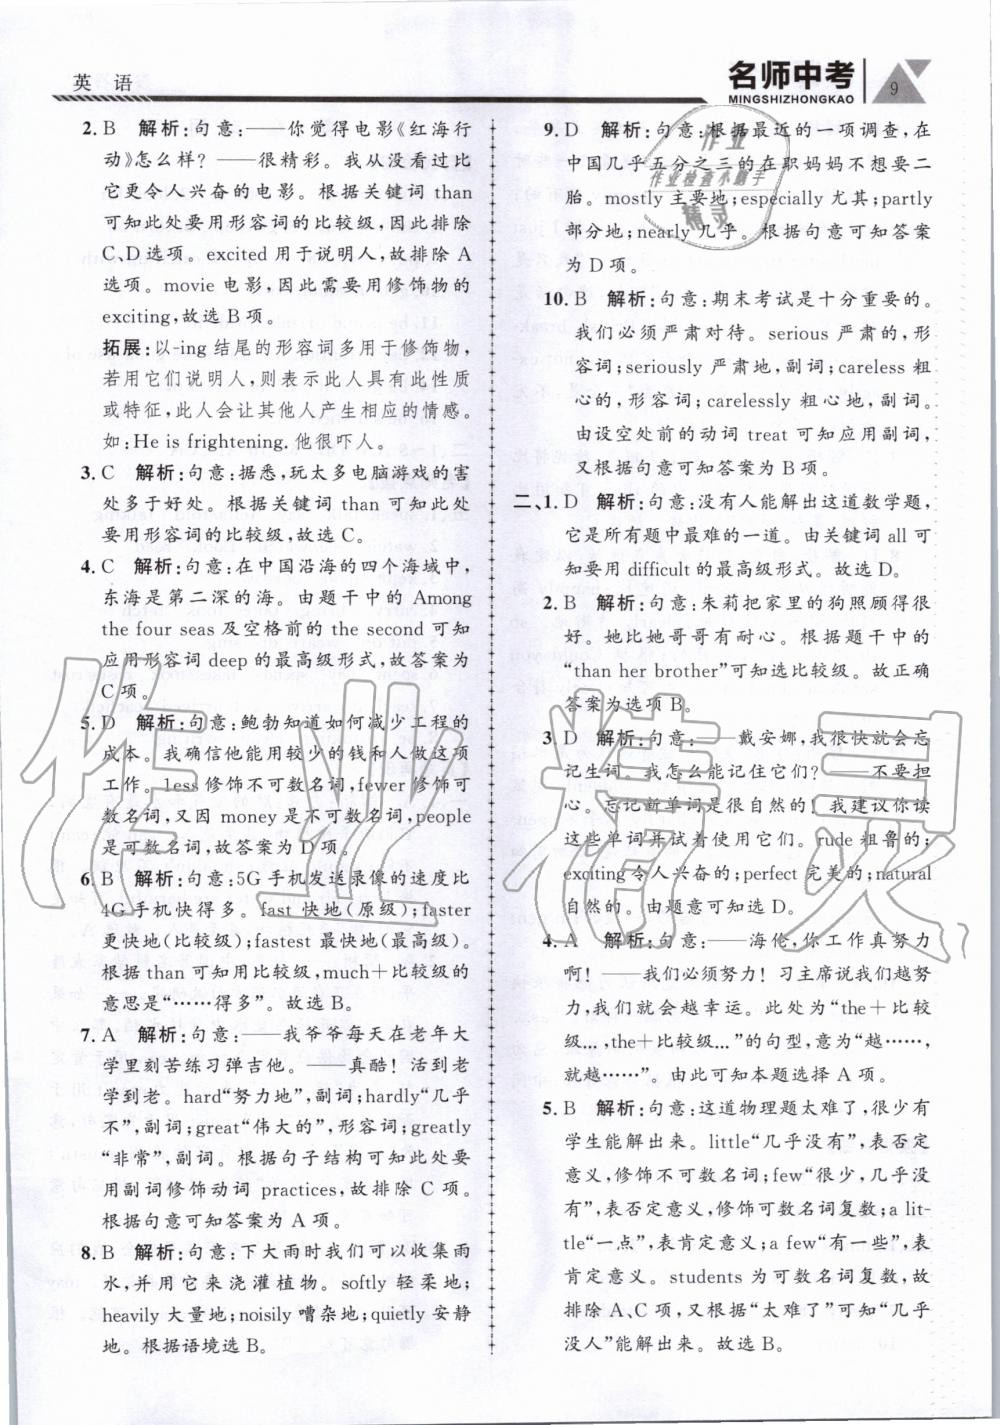 英 语
名师中考
MINGSHIZHONGKAO
9
2. B 解析:句意:——你觉得电影《红海行
动》怎么样? ——很精彩。我从没看过比
它更令人兴奋的电影。根据关键词 than
可知此处要用形容词的比较级,因此排除
C、D 选项。excited 用于说明人,故排除 A
选项。movie 电影,因此需要用修饰物的
exciting,故选 B 项。
拓展:以-ing 结尾的形容词多用于修饰物,
若用它们说明人,则表示此人具有此性质
或特征,此人会让其他人产生相应的情感。
如:He is frightening. 他很吓人。
3. C 解析:句意:据悉,玩太多电脑游戏的害
处多于好处。根据关键词 than 可知此处
要用形容词的比较级,故选 C。
4. C 解析:句意:在中国沿海的四个海域中,
东海是第二深的海。由题干中的 Among
the four seas 及空格前的 the second 可知
应用形容词 deep 的最高级形式,故答案为
C 项。
5. D 解析:句意:鲍勃知道如何减少工程的
成本。我确信他能用较少的钱和人做这项
工作。less 修饰不可数名词,fewer 修饰可
数名词,又因 money 是不可数名词,people
是可数名词,故答案为 D 项。
6. B 解析:句意:5G 手机发送录像的速度比
4G 手机快得多。fast 快地(原级);faster
更快地(比较级);fastest 最快地(最高级)。
根据 than 可知用比较级,much＋比较级的
意思是“……得多”。故选 B。
7. A 解析:句意:——我爷爷每天在老年大
学里刻苦练习弹吉他。——真酷!活到老
学到老。hard“努力地”,副词;hardly“几乎
不”,副词;great“伟大的”,形容词;greatly
“非常”,副词。根据句子结构可知此处要
用副词修饰动词 practices,故排除 C 项。
根据句意可知答案为 A 项。
8. B 解析:句意:下大雨时我们可以收集雨
水,并用它来浇灌植物。softly 轻柔地;
heavily 大量地;noisily 嘈杂地;quietly 安静
地。根据语境选 B。
9. D 解析:句意:根据最近的一项调查,在
中国几乎五分之三的在职妈妈不想要二
胎。mostly 主要地;especially 尤其;partly
部分地;nearly 几乎。根据句意可知答案
为 D 项。
10. B 解析:句意:期末考试是十分重要的。
我们必须严肃对待。serious 严肃的,形
容词;seriously 严肃地,副词;careless 粗
心的,形容词;carelessly 粗心地,副词。
由设空处前的动词 treat 可知应用副词,
又根据句意可知答案为 B 项。
二、1. D 解析:句意:没有人能解出这道数学题,
它是所有题中最难的一道。由关键词 all 可
知要用 difficult 的最高级形式。故选 D。
2. B 解析:句意:朱莉把家里的狗照顾得很
好。她比她哥哥有耐心。根据题干中的
“than her brother”可知选比较级。故正确
答案为选项 B。
3 D 解析:句意:——戴安娜,我很快就会忘
记生词。我怎么能记住它们? ——不要担
心。忘记新单词是很自然的!我建议你读
这些单词并试着使用它们。rude 粗鲁的;
exciting 令人兴奋的;perfect 完美的;natural
自然的。由题意可知选 D。
4. A 解析:句意:——海伦,你工作真努力
啊!——我们必须努力!习主席说我们越努
力,我们就会越幸运。此处为“the＋比较
级…,the＋比较级…”的句型,意为“越……,
就越……”。由此可知本题选择 A 项。
5. B 解析:句意:这道物理题太难了,很少有
学生能解出来。little“几乎没有”,表否定
意义,修饰不可数名词;few“很少,几乎没
有”,表否定意义,修饰可数名词复数;a lit-
tle“一点”,表肯定意义;a few“有一些”,表
肯定意义。students 为可数名词复数,故
排除 A、C 项,又根据“太难了”可知“几乎
没人”能解出来。故选 B。
作业
作业检查小助手
精灵
作业精灵